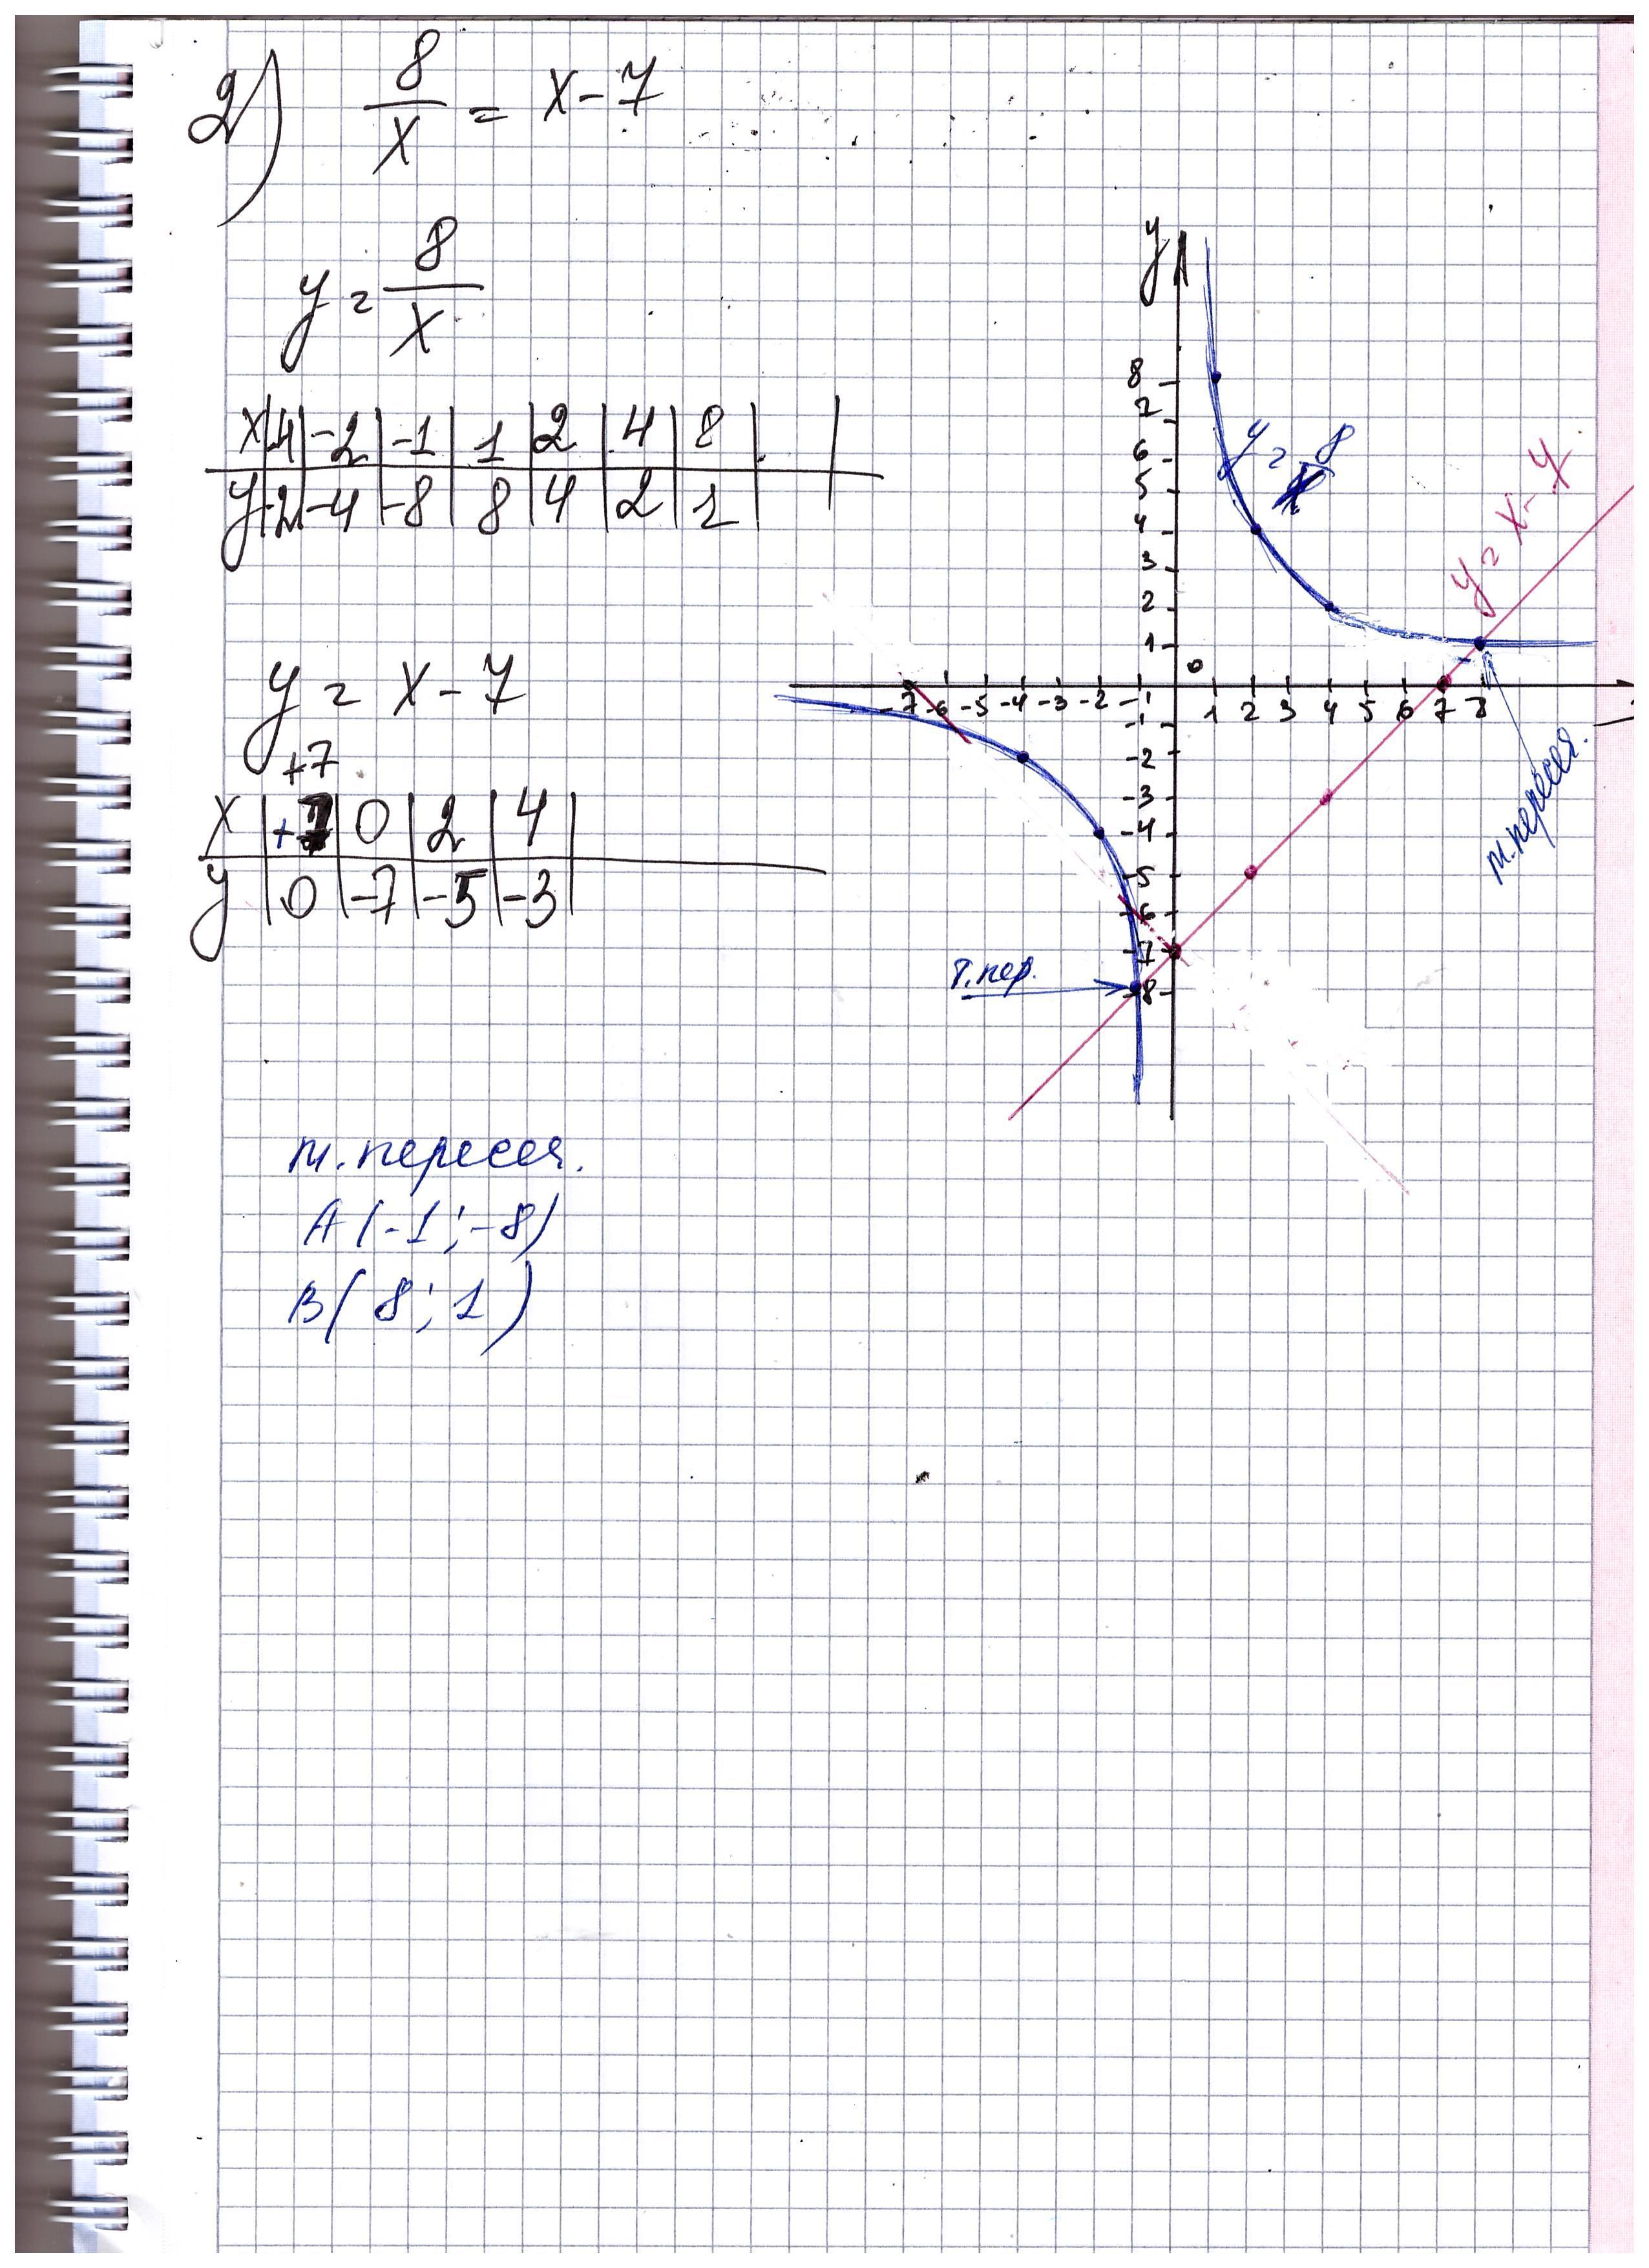 2) 8/x = x - 7
y = 8/x
x | -4 | -2 | -1 | 1 | 2 | 4 | 8
y | -2 | -4 | -8 | 8 | 4 | 2 | 1
y = x - 7
+7
x | +7 | 0 | 2 | 4
y | 0 | -7 | -5 | -3
y
8
7
6
5
4
3
2
1
0
-7 -6 -5 -4 -3 -2 -1 1 2 3 4 5 6 7 8
-1
-2
-3
-4
-5
-6
-7
-8
y = 8/x
y = x - 7
т. пересеч.
т. пер.
т. пересеч.
A(-1; -8)
B(8; 1)